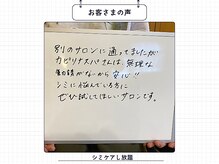 お客さまの声
別のサロンに通ってましたが
カピリナスパさんは、無理な
勧誘がないから安心!!
シミに悩んでいる方に
ぜひ試してほしいサロンです。
シミケアし放題